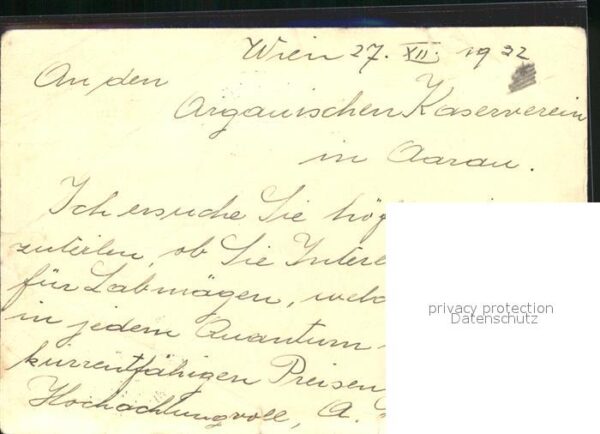 Wien 27. XII. 1932
An den
Argauischen Kaserverein
in Aarau.
Ich ersuche Sie hög
zuteilen, ob Sie Intere
für Labmägen, welc
in jedem Quantum
kurrentfähigen Preisen
Hochachtungvoll, A.
privacy protection
Datenschutz